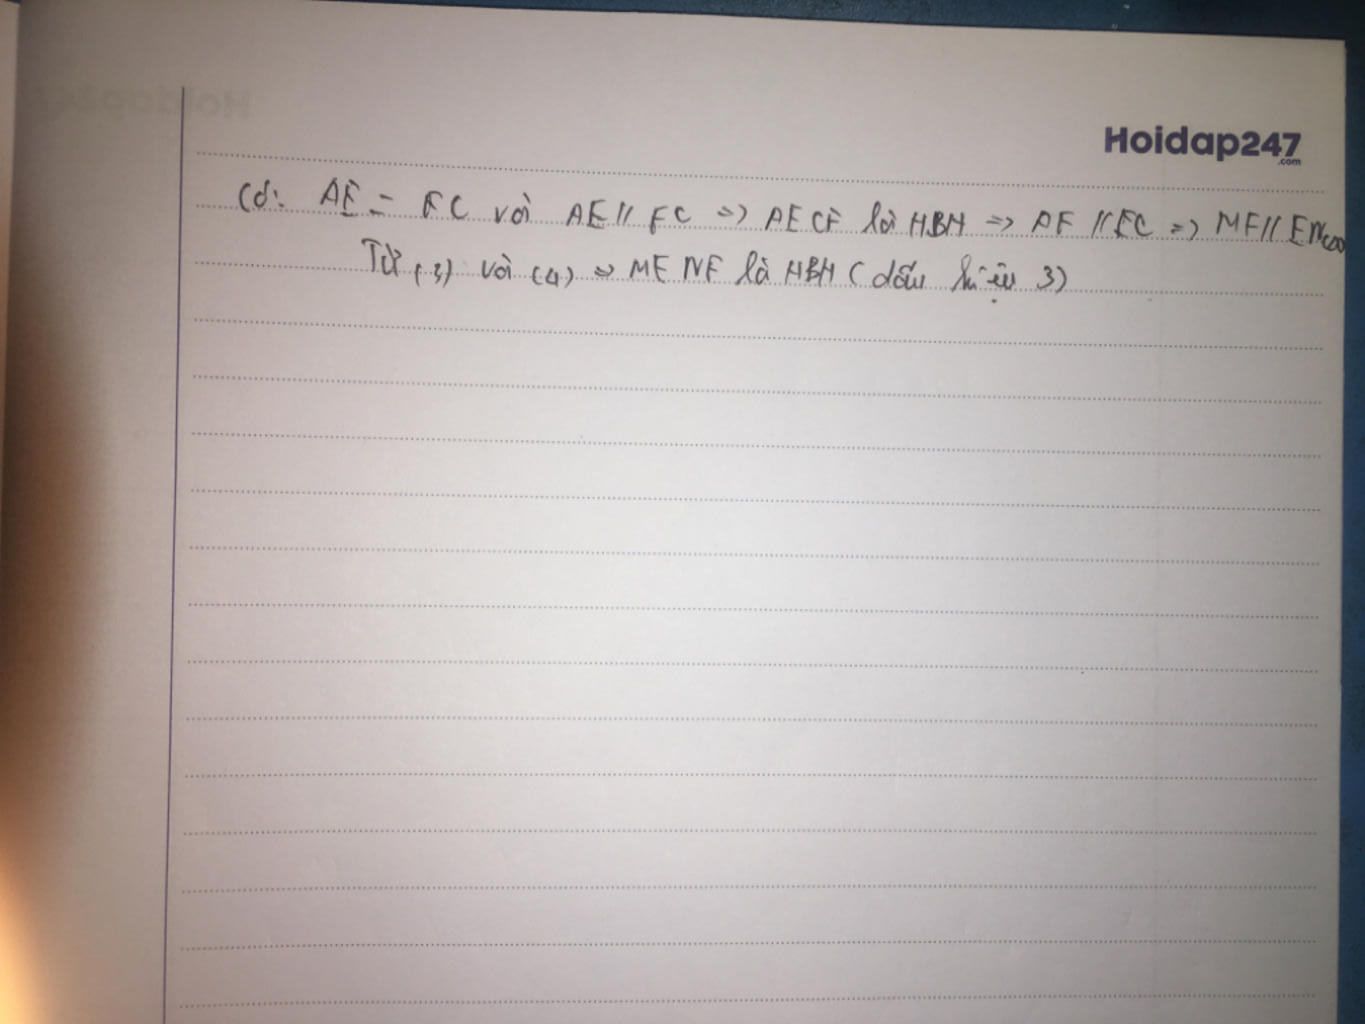 Hoidap247
.com
Có: AE = FC và AE // FC => AECF là HBH => AF // EC => MF // EN
Từ (3) và (4) => MENF là HBH (dấu hiệu 3)